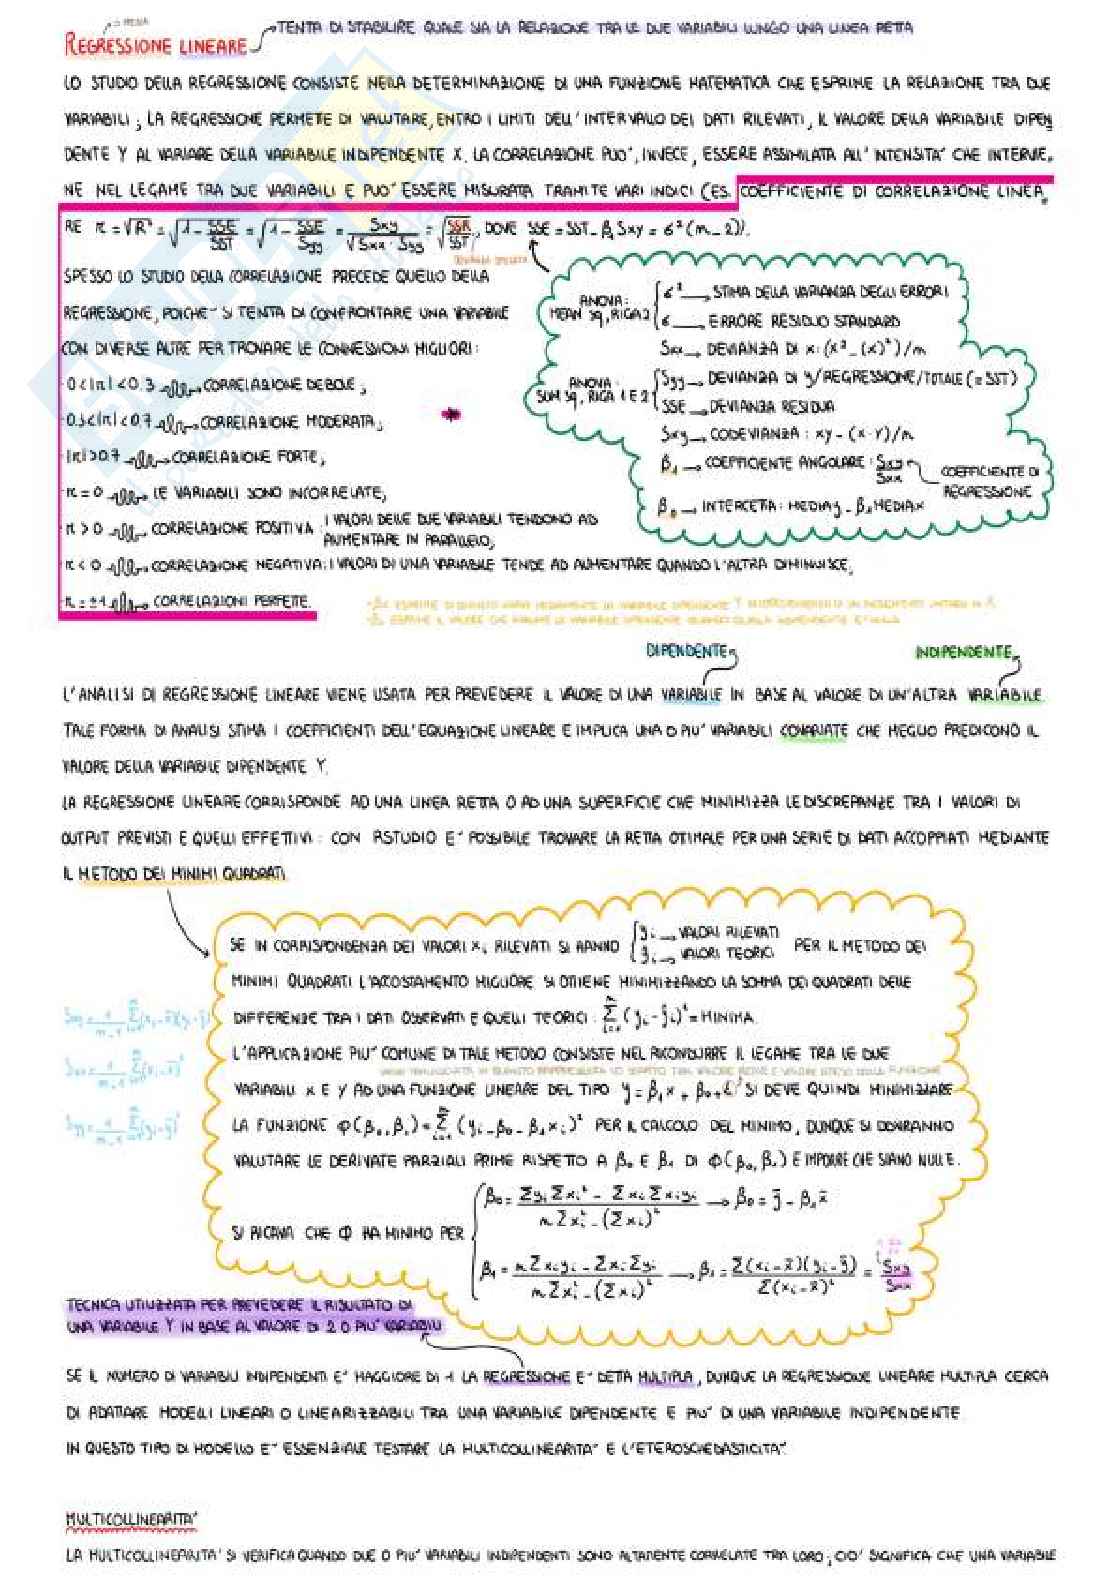 REGRESSIONE LINEARE
TENTA DI STABILIRE QUALE SIA LA RELAZIONE TRA LE DUE VARIABILI LUNGO UNA LINEA RETTA
LO STUDIO DELLA REGRESSIONE CONSISTE NELLA DETERMINAZIONE DI UNA FUNZIONE MATEMATICA CHE ESPRIME LA RELAZIONE TRA DUE
VARIABILI; LA REGRESSIONE PERMETTE DI VALUTARE, ENTRO I LIMITI DELL'INTERVALLO DEI DATI RILEVATI, IL VALORE DELLA VARIABILE DIPEN
DENTE Y AL VARIARE DELLA VARIABILE INDIPENDENTE X. LA CORRELAZIONE PUO', INVECE, ESSERE ASSIMILATA ALL'INTENSITA' CHE INTERVIE_
NE NEL LEGAME TRA DUE VARIABILI E PUO' ESSERE MISURATA TRAMITE VARI INDICI (ES. COEFFICIENTE DI CORRELAZIONE LINEA_
RE r = √R² = √(1 - SSE/SST) = √(1 - SSE/Syy) = Sxy/√(Sxx · Syy) = √(SSR/SST), DOVE SSE = SST - β₁Sxy = σ²(n-2)).
SPESSO LO STUDIO DELLA CORRELAZIONE PRECEDE QUELLO DELLA
REGRESSIONE, POICHE' SI TENTA DI CONFRONTARE UNA VARIABILE
CON DIVERSE ALTRE PER TROVARE LE CONNESSIONI MIGLIORI:
· 0<|r|<0.3 → CORRELAZIONE DEBOLE;
· 0.3<|r|<0.7 → CORRELAZIONE MODERATA;
· |r|>0.7 → CORRELAZIONE FORTE;
· r = 0 → LE VARIABILI SONO INCORRELATE;
· r > 0 → CORRELAZIONE POSITIVA: I VALORI DELLE DUE VARIABILI TENDONO AD
AUMENTARE IN PARALLELO;
· r < 0 → CORRELAZIONE NEGATIVA: I VALORI DI UNA VARIABILE TENDE AD AUMENTARE QUANDO L'ALTRA DIMINUISCE;
· r = ±1 → CORRELAZIONI PERFETTE.
ANOVA:
MEAN SQ, RIGA 2
σ² → STIMA DELLA VARIANZA DEGLI ERRORI
σ → ERRORE RESIDUO STANDARD
Sxx → DEVIANZA DI x: (x² - (x)²)/n
ANOVA:
SUM SQ, RIGA 1 E 2
Syy → DEVIANZA DI y/REGRESSIONE/TOTALE (= SST)
SSE → DEVIANZA RESIDUA
Sxy → CODEVIANZA: xy - (x·y)/n
β₁ → COEFFICIENTE ANGOLARE: Sxy/Sxx
COEFFICIENTE DI
REGRESSIONE
β₀ → INTERCETTA: MEDIAy - β₁MEDIAx
DIPENDENTE
INDIPENDENTE
L'ANALISI DI REGRESSIONE LINEARE VIENE USATA PER PREVEDERE IL VALORE DI UNA VARIABILE IN BASE AL VALORE DI UN'ALTRA VARIABILE.
TALE FORMA DI ANALISI STIMA I COEFFICIENTI DELL'EQUAZIONE LINEARE E IMPLICA UNA O PIU' VARIABILI COVARIATE CHE MEGLIO PREDICONO IL
VALORE DELLA VARIABILE DIPENDENTE Y.
LA REGRESSIONE LINEARE CORRISPONDE AD UNA LINEA RETTA O AD UNA SUPERFICIE CHE MINIMIZZA LE DISCREPANZE TRA I VALORI DI
OUTPUT PREVISTI E QUELLI EFFETTIVI: CON RSTUDIO E' POSSIBILE TROVARE LA RETTA OTTIMALE PER UNA SERIE DI DATI ACCOPPIATI MEDIANTE
IL METODO DEI MINIMI QUADRATI.
SE IN CORRISPONDENZA DEI VALORI xᵢ RILEVATI SI HANNO
yᵢ → VALORI RILEVATI
ŷᵢ → VALORI TEORICI
PER IL METODO DEI
MINIMI QUADRATI L'ACCOSTAMENTO MIGLIORE SI OTTIENE MINIMIZZANDO LA SOMMA DEI QUADRATI DELLE
DIFFERENZE TRA I DATI OSSERVATI E QUELLI TEORICI: Σ(yᵢ - ŷᵢ)² = MINIMA.
L'APPLICAZIONE PIU' COMUNE DI TALE METODO CONSISTE NEL RICONDURRE IL LEGAME TRA LE DUE
VARIABILI X E Y AD UNA FUNZIONE LINEARE DEL TIPO y = β₁x + β₀ + ε; SI DEVE QUINDI MINIMIZZARE
LA FUNZIONE φ(β₀, β₁) = Σ(yᵢ - β₀ - β₁xᵢ)² PER IL CALCOLO DEL MINIMO, DUNQUE SI DOVRANNO
VALUTARE LE DERIVATE PARZIALI PRIME RISPETTO A β₀ E β₁ DI φ(β₀, β₁) E IMPORRE CHE SIANO NULLE.
SI RICAVA CHE φ HA MINIMO PER
β₀ = (Σyᵢ Σxᵢ² - Σxᵢ Σxᵢyᵢ)/(nΣxᵢ² - (Σxᵢ)²) → β₀ = ȳ - β₁x̄
β₁ = (nΣxᵢyᵢ - Σxᵢ Σyᵢ)/(nΣxᵢ² - (Σxᵢ)²) → β₁ = Σ(xᵢ - x̄)(yᵢ - ȳ)/Σ(xᵢ - x̄)² = Sxy/Sxx
Sxy = 1/(n-1) Σ(xᵢ - x̄)(yᵢ - ȳ)
Sxx = 1/(n-1) Σ(xᵢ - x̄)²
Syy = 1/(n-1) Σ(yᵢ - ȳ)²
TECNICA UTILIZZATA PER PREVEDERE IL RISULTATO DI
UNA VARIABILE Y IN BASE AL VALORE DI 2 O PIU' VARIABILI
SE IL NUMERO DI VARIABILI INDIPENDENTI E' MAGGIORE DI 1 LA REGRESSIONE E' DETTA MULTIPLA, DUNQUE LA REGRESSIONE LINEARE MULTIPLA CERCA
DI ADATTARE MODELLI LINEARI O LINEARIZZABILI TRA UNA VARIABILE DIPENDENTE E PIU' DI UNA VARIABILE INDIPENDENTE.
IN QUESTO TIPO DI MODELLO E' ESSENZIALE TESTARE LA MULTICOLLINEARITA' E L'ETEROSCHEDASTICITA'.
MULTICOLLINEARITA'
LA MULTICOLLINEARITA' SI VERIFICA QUANDO DUE O PIU' VARIABILI INDIPENDENTI SONO ALTAMENTE CORRELATE TRA LORO; CIO' SIGNIFICA CHE UNA VARIABILE